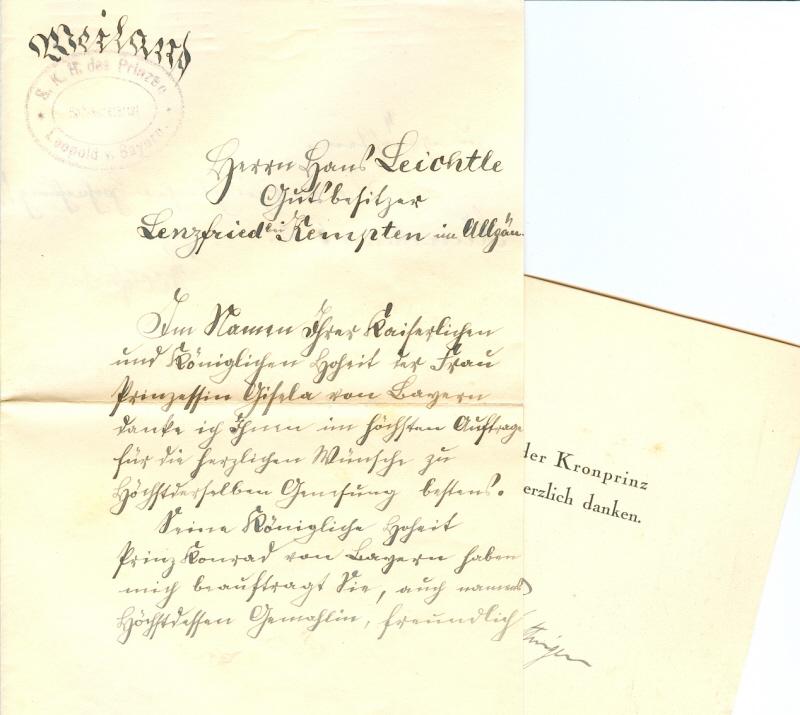 Weiland
S. K. H. des Prinzen
Leopold v. Bayern.
Herrn Hans Leichtle
Gutsbesitzer
Lenzfried bei Kempten im Allgäu.
Im Namen Ihrer Kaiserlichen
und Königlichen Hoheit der Frau
Prinzessin Gisela von Bayern
danke ich Ihnen im höchsten Auftrage
für die herzlichen Wünsche zu
Höchstderselben Genesung bestens.
Seine Königliche Hoheit
Prinz Konrad von Bayern haben
mich beauftragt Sie, auch namens
Höchstdessen Gemahlin, freundlich
der Kronprinz
erzlich danken.